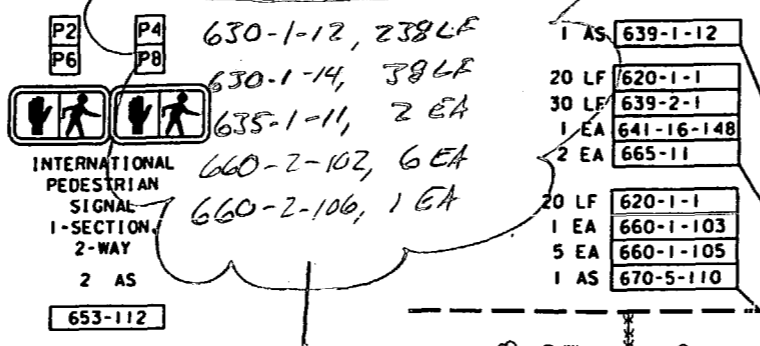 P2 P4
P6 P8
INTERNATIONAL
PEDESTRIAN
SIGNAL
1-SECTION,
2-WAY
2 AS
653-112
630-1-12, 238 LF
630-1-14, 38 LF
635-1-11, 2 EA
660-2-102, 6 EA
660-2-106, 1 EA
1 AS 639-1-12
20 LF 620-1-1
30 LF 639-2-1
1 EA 641-16-148
2 EA 665-11
20 LF 620-1-1
1 EA 660-1-103
5 EA 660-1-105
1 AS 670-5-110